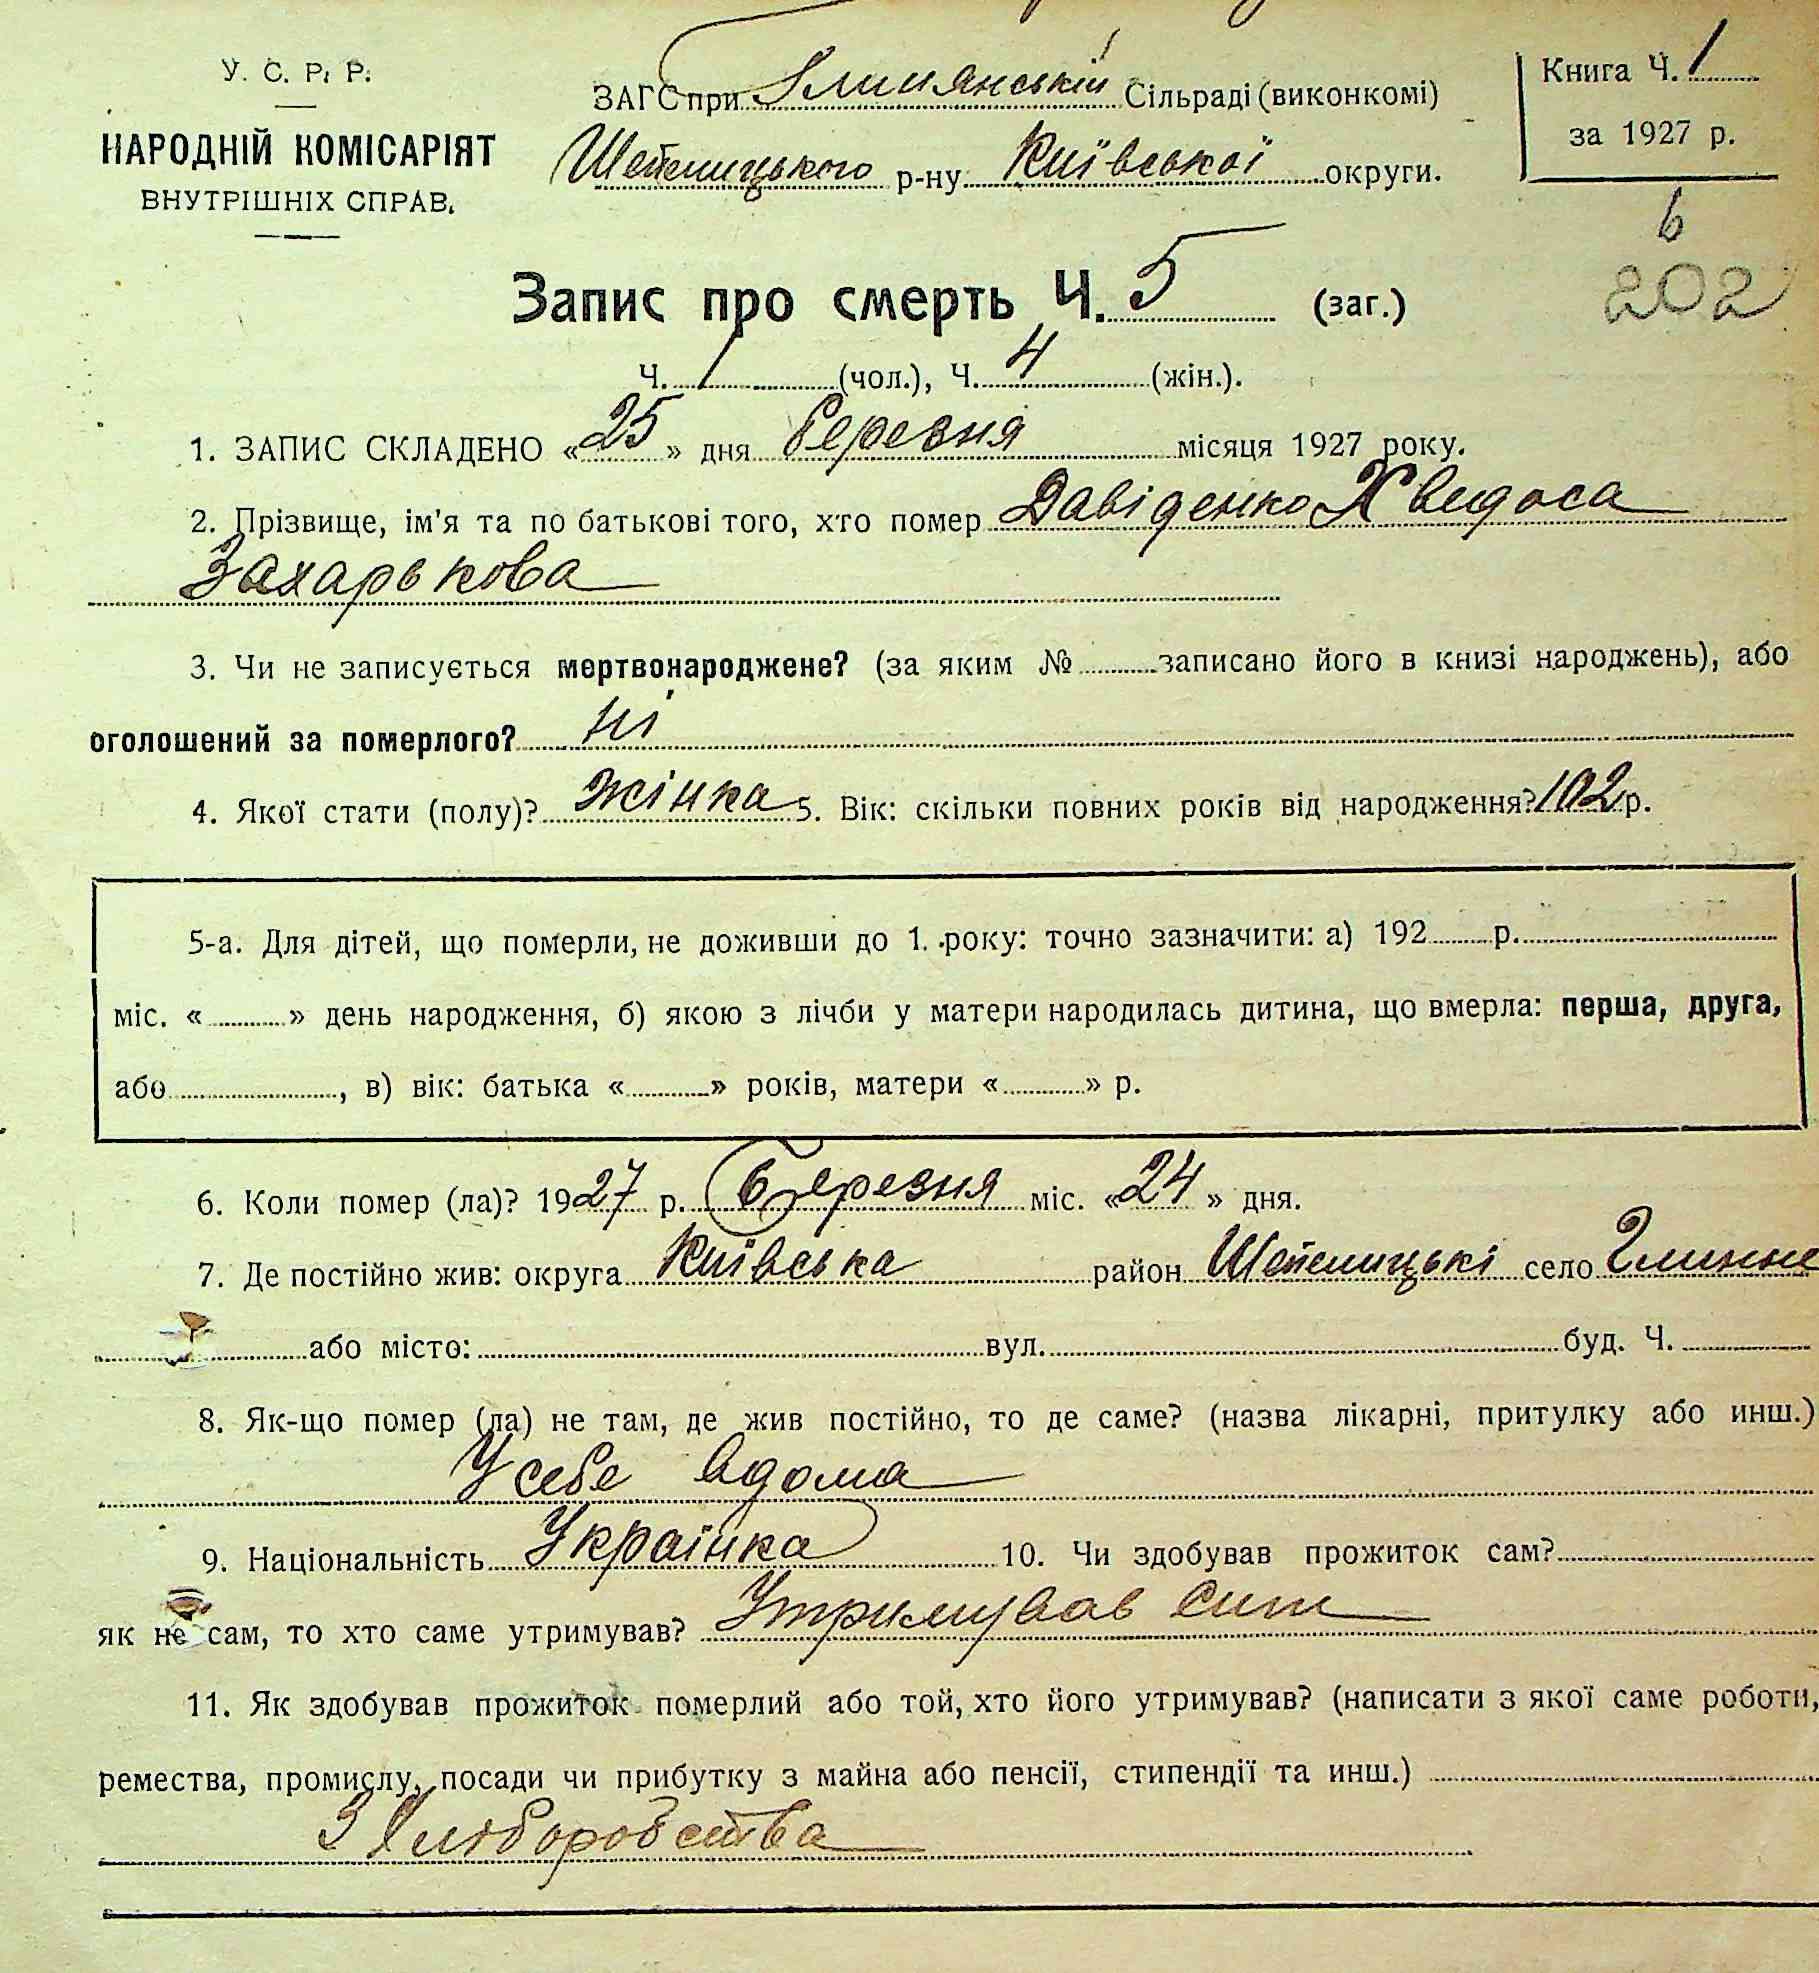 У. С. Р. Р.
НАРОДНІЙ КОМІСАРІЯТ
ВНУТРІШНІХ СПРАВ.
ЗАГС при Глинянській Сільраді (виконкомі)
Шепелицького р-ну Київської округи.
Книга Ч. 1
за 1927 р.
6
202
Запис про смерть Ч. 5 (заг.)
Ч. 1 (чол.), Ч. 4 (жін.).
1. ЗАПИС СКЛАДЕНО «25» дня Березня місяця 1927 року.
2. Прізвище, ім'я та по батькові того, хто помер Давіденко Хведоса
Захарькова
3. Чи не записується мертвонароджене? (за яким № записано його в книзі народжень), або
оголошений за померлого? Ні
4. Якої стати (полу)? жінка 5. Вік: скільки повних років від народження? 102 р.
5-а. Для дітей, що померли, не доживши до 1. року: точно зазначити: а) 192 р.
міс. « » день народження, б) якою з лічби у матери народилась дитина, що вмерла: перша, друга,
або , в) вік: батька « » років, матери « » р.
6. Коли помер (ла)? 1927 р. Березня міс. «24» дня.
7. Де постійно жив: округа Київська район Шепелицькі село Глинне
або місто: вул. буд. Ч.
8. Як-що помер (ла) не там, де жив постійно, то де саме? (назва лікарні, притулку або инш.)
У себе вдома
9. Національність Українка 10. Чи здобував прожиток сам?
як не сам, то хто саме утримував? Утримував син
11. Як здобував прожиток померлий або той, хто його утримував? (написати з якої саме роботи,
ремества, промислу, посади чи прибутку з майна або пенсії, стипендії та инш.)
З Хлиборобства